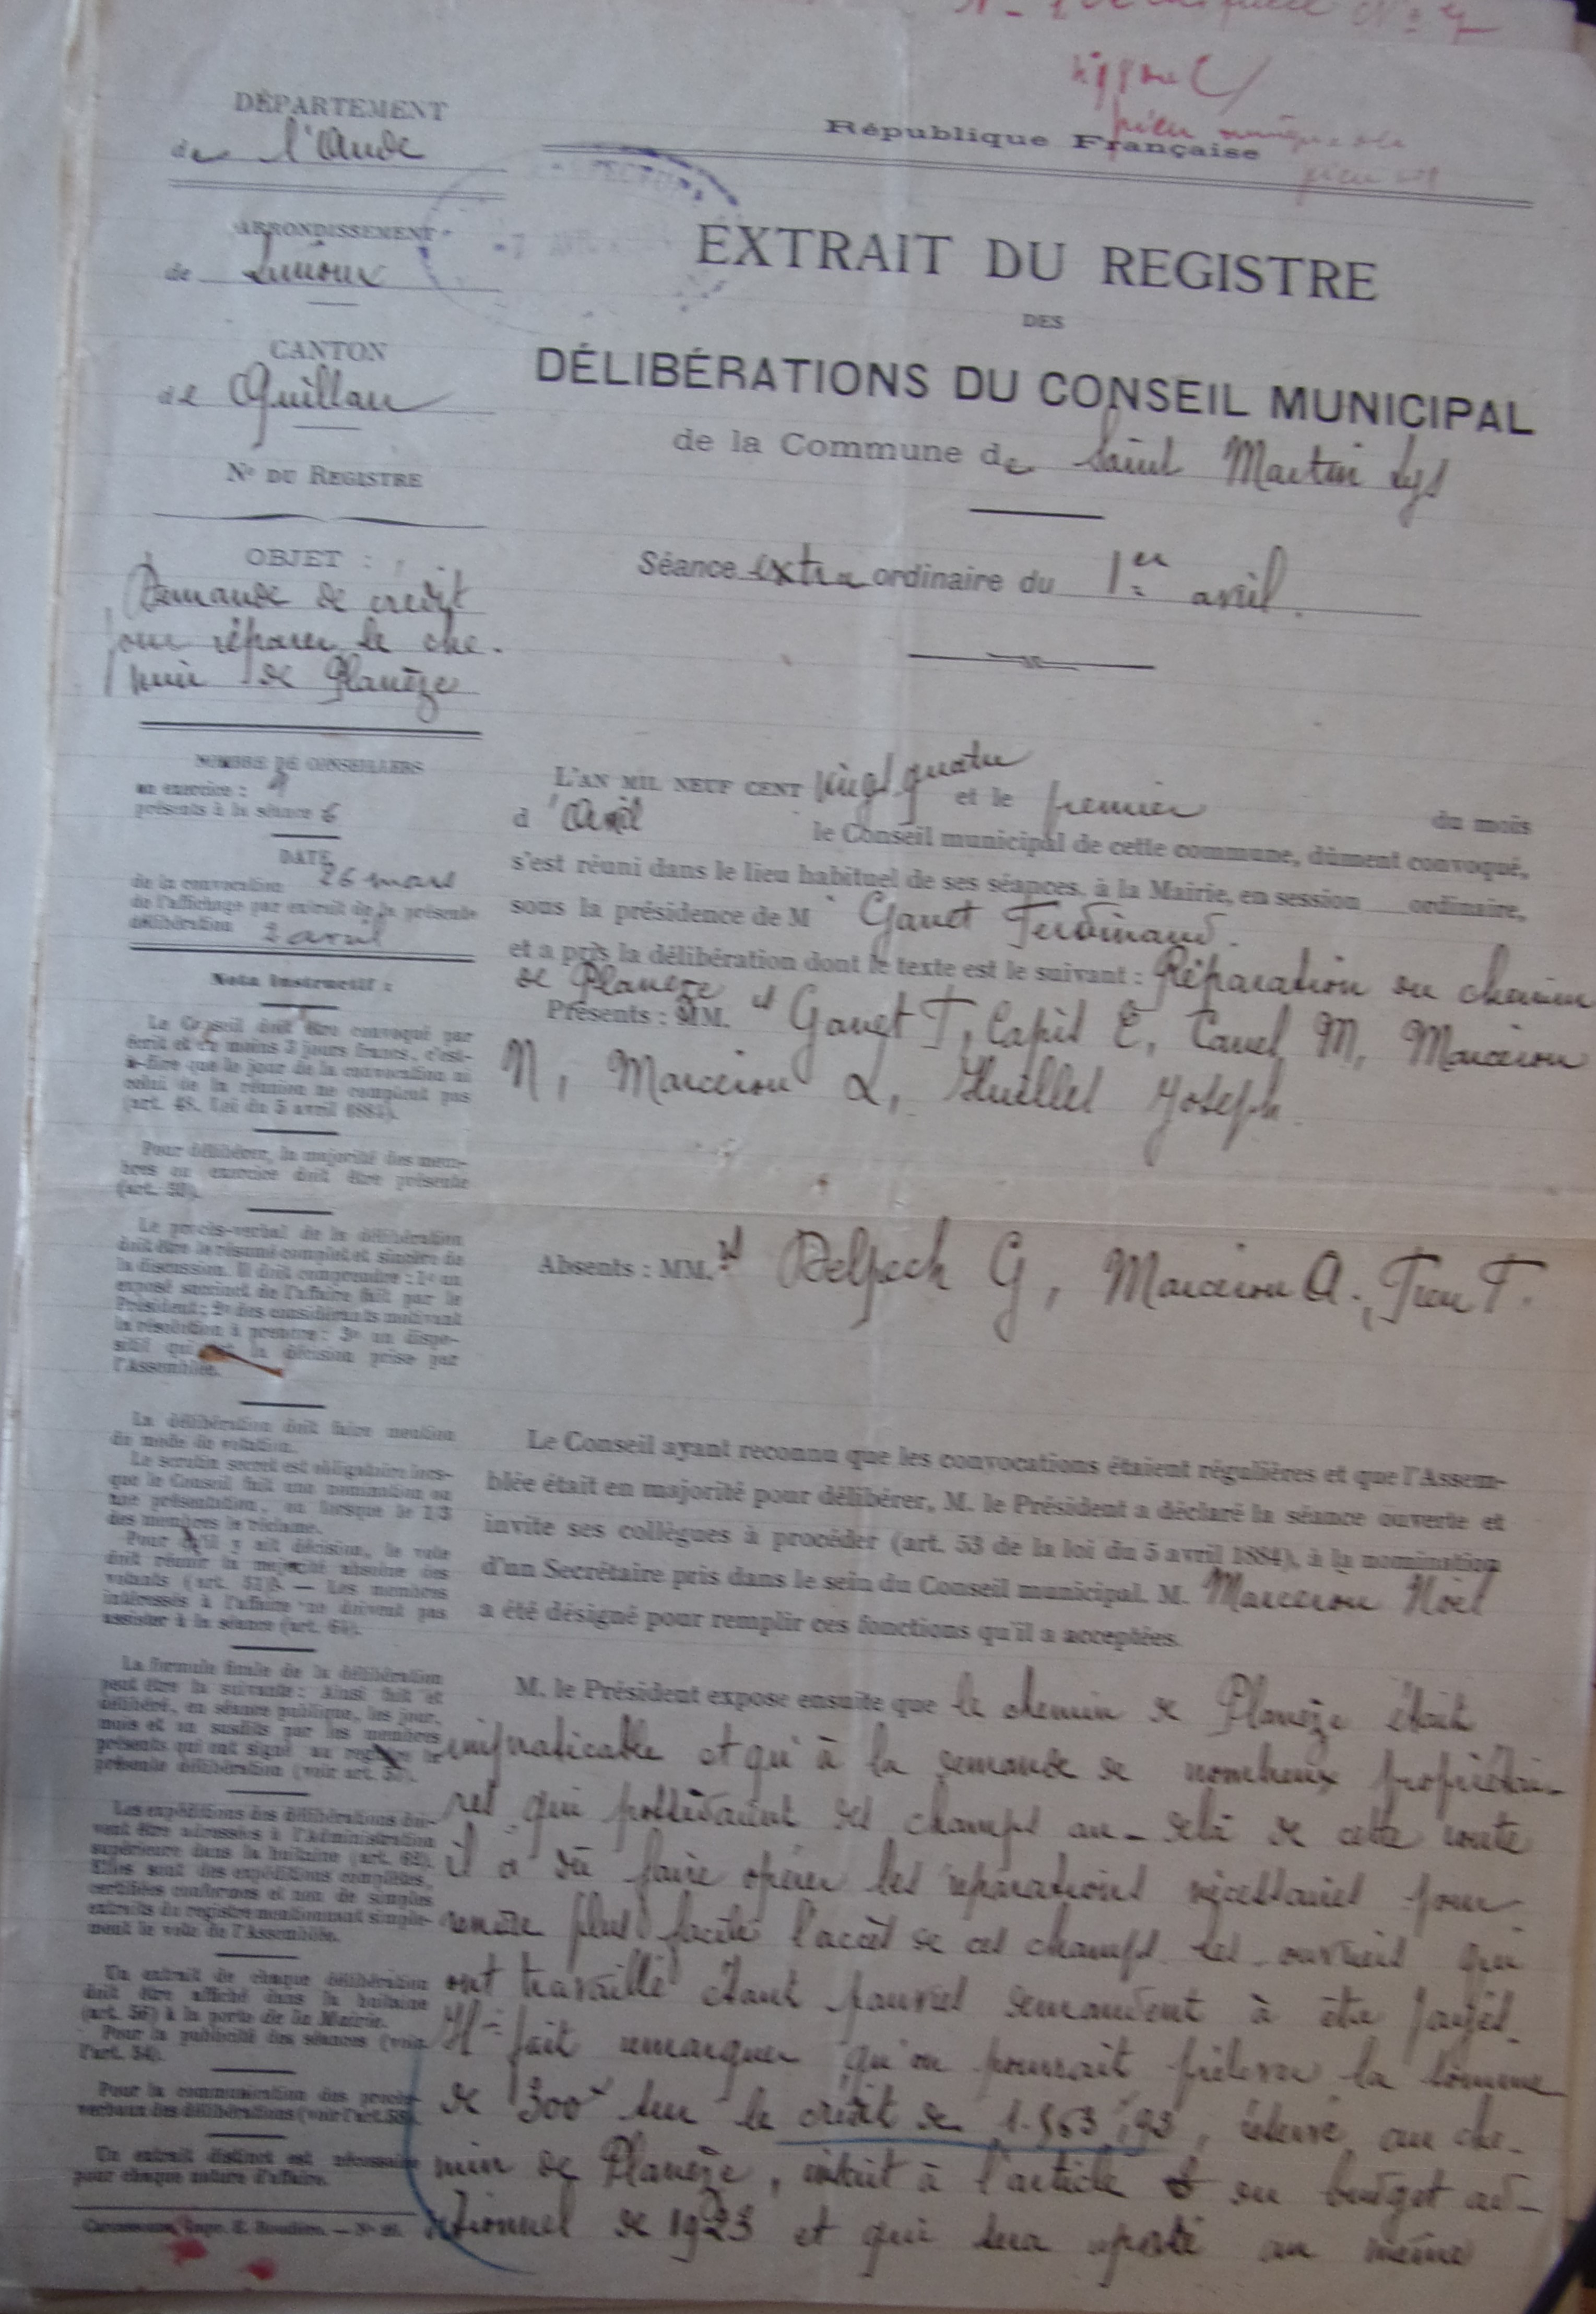 DÉPARTEMENT
de l'Aude
ARRONDISSEMENT
de Limoux
CANTON
de Quillan
N° DU REGISTRE
OBJET :
Demande de crédit
pour réparer le che-
min de Planèze
NOMBRE DE CONSEILLERS
en exercice : 9
présents à la séance 6
DATE
de la convocation 26 mars
de l'affichage par extrait de la présente
délibération 2 avril
Nota Instructif :
Le Conseil doit être convoqué par
écrit et au moins 3 jours francs, c'est-
à-dire que le jour de la convocation ni
celui de la réunion ne comptent pas
(art. 48. Loi du 5 avril 1884).
Pour délibérer, la majorité des mem-
bres en exercice doit être présente
(art. 50).
Le procès-verbal de la délibération
doit être le résumé complet et sincère de
la discussion. Il doit comprendre : 1° un
exposé succinct de l'affaire fait par le
Président ; 2° des considérants motivant
la résolution à prendre ; 3° un dispo-
sitif qui est la décision prise par
l'Assemblée.
La délibération doit faire mention
du mode de votation.
Le scrutin secret est obligatoire lors-
que le Conseil fait une nomination ou
une présentation, ou lorsque le 1/3
des membres le réclame.
Pour qu'il y ait décision, le vote
doit réunir la majorité absolue des
votants (art. 51). — Les membres
intéressés à l'affaire ne doivent pas
assister à la séance (art. 64).
La formule finale de la délibération
peut être la suivante : Ainsi fait et
délibéré, en séance publique, les jour,
mois et an susdits par les membres
présents qui ont signé au registre la
présente délibération (voir art. 57).
Les expéditions des délibérations doi-
vent être adressées à l'Administration
supérieure dans la huitaine (art. 62).
Elles sont des expéditions complètes,
certifiées conformes et non de simples
extraits du registre mentionnant simple-
ment le vote de l'Assemblée.
Un extrait de chaque délibération
doit être affiché dans la huitaine
(art. 56) à la porte de la Mairie.
Pour la publicité des séances (voir
l'art. 54).
Pour la communication des procès-
verbaux des délibérations (voir l'art. 58).
Un extrait distinct est nécessaire
pour chaque nature d'affaire.
Carcassonne, Imp.
République Française
EXTRAIT DU REGISTRE
DES
DÉLIBÉRATIONS DU CONSEIL MUNICIPAL
de la Commune de Saint Martin Lys
Séance extra ordinaire du 1er avril.
L'AN MIL NEUF CENT vingt quatre et le premier du mois
d'Avril le Conseil municipal de cette commune, dûment convoqué,
s'est réuni dans le lieu habituel de ses séances, à la Mairie, en session ordinaire,
sous la présidence de M Ganet Ferdinand.
et a pris la délibération dont le texte est le suivant : Réparation du chemin
de Planèze
Présents : MM. Ganet F, Capil E, Canel M, Marcerou
N, Marcerou L, Huillet Joseph.
Absents : MM. Delpech G, Marcerou A., F.
Le Conseil ayant reconnu que les convocations étaient régulières et que l'Assem-
blée était en majorité pour délibérer, M. le Président a déclaré la séance ouverte et
invite ses collègues à procéder (art. 53 de la loi du 5 avril 1884), à la nomination
d'un Secrétaire pris dans le sein du Conseil municipal. M. Marcerou Noël
a été désigné pour remplir ces fonctions qu'il a acceptées.
M. le Président expose ensuite que le chemin de Planèze était
impraticable et qu'à la demande de nombreux propriétai-
res qui possèdaient des champs au-delà de cette route
il a dû faire opérer les réparations nécessaires pour
rendre plus facile l'accès de ces champs. Les ouvriers qui
ont travaillé étant pauvres demandent à être payés.
Il fait remarquer qu'on pourrait prélever la somme
de 300f sur le crédit de 1.563f,93, réservé au che-
min de Planèze, inscrit à l'article du budget ad-
ditionnel de 1923 et qui sera reporté au même